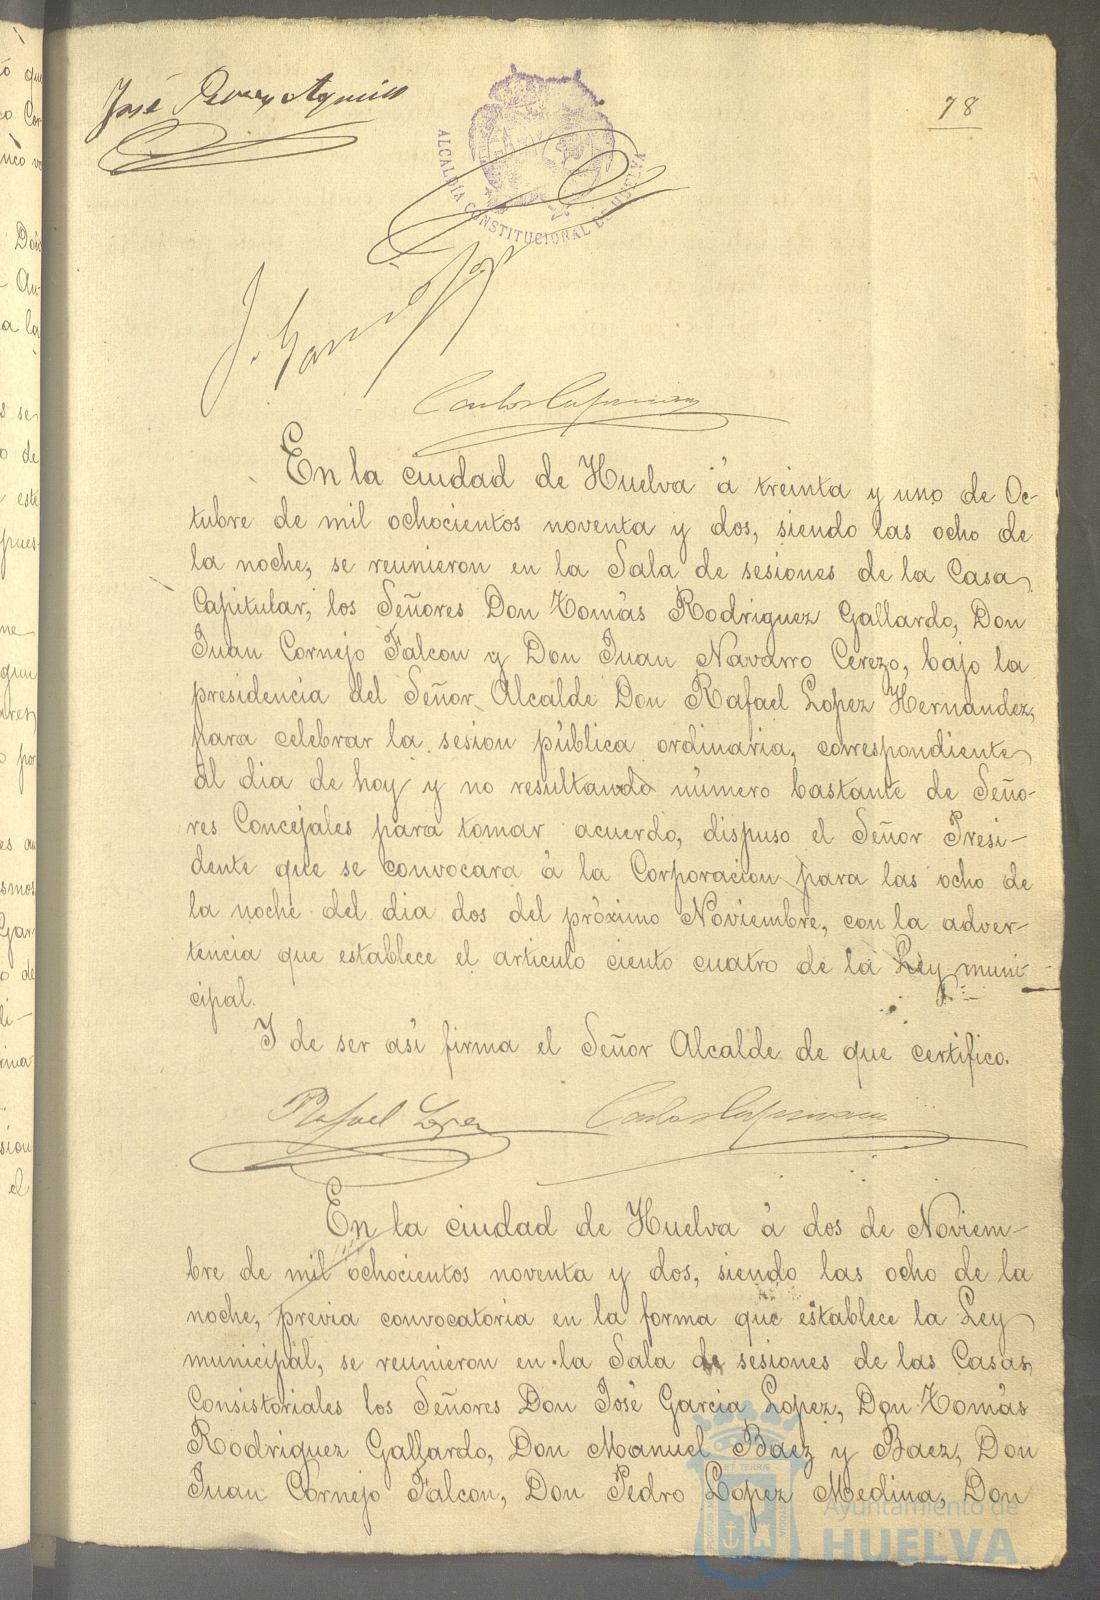 78
José
ALCALDIA CONSTITUCIONAL DE HUELVA
En la ciudad de Huelva á treinta y uno de Oc-
tubre de mil ochocientos noventa y dos, siendo las ocho de
la noche, se reunieron en la Sala de sesiones de la Casa
Capitular, los Señores Don Tomás Rodriguez Gallardo, Don
Juan Cornejo Falcon y Don Juan Navarro Cerezo, bajo la
presidencia del Señor Alcalde Don Rafael Lopez Hernandez,
para celebrar la sesion pública ordinaria, correspondiente
al dia de hoy y no resultando número bastante de Seño-
res Concejales para tomar acuerdo, dispuso el Señor Presi-
dente que se convocara á la Corporacion para las ocho de
la noche del dia dos del próximo Noviembre, con la adver-
tencia que establece el articulo ciento cuatro de la Ley muni-
cipal.
Y de ser así firma el Señor Alcalde de que certifico.
Rafael Lopez
En la ciudad de Huelva á dos de Noviem-
bre de mil ochocientos noventa y dos, siendo las ocho de la
noche, previa convocatoria en la forma que establece la Ley
municipal, se reunieron en la Sala de sesiones de las Casas
Consistoriales los Señores Don José Garcia Lopez, Don Tomás
Rodriguez Gallardo, Don Manuel Baez y Baez, Don
Juan Cornejo Falcon, Don Pedro Lopez Medina, Don
Ayuntamiento de
HUELVA